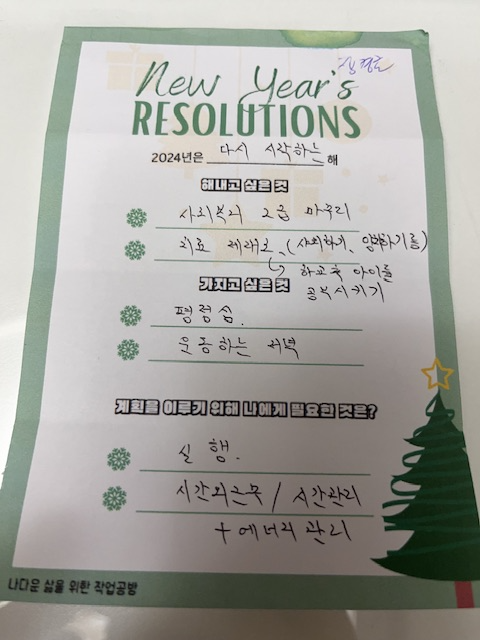 New Year's
RESOLUTIONS
2024년은 다시 시작하는 해
해내고 싶은 것
사회복지 2급 마무리
치료 제대로 (사회하기, 양육하기 등)
↳ 하교 후 아이들
가지고 싶은 것 공부시키기
평정심.
운동하는 저녁
계획을 이루기 위해 나에게 필요한 것은?
실행.
시간외근무 / 시간관리
+ 에너지 관리
나다운 삶을 위한 작업공방